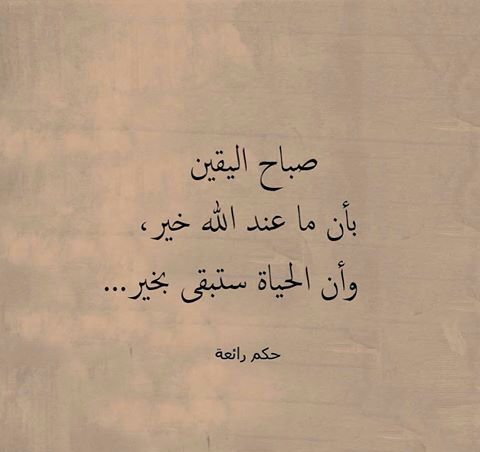 صباح اليقين
بأن ما عند الله خير،
وأن الحياة ستبقى بخير...
حكم رائعة